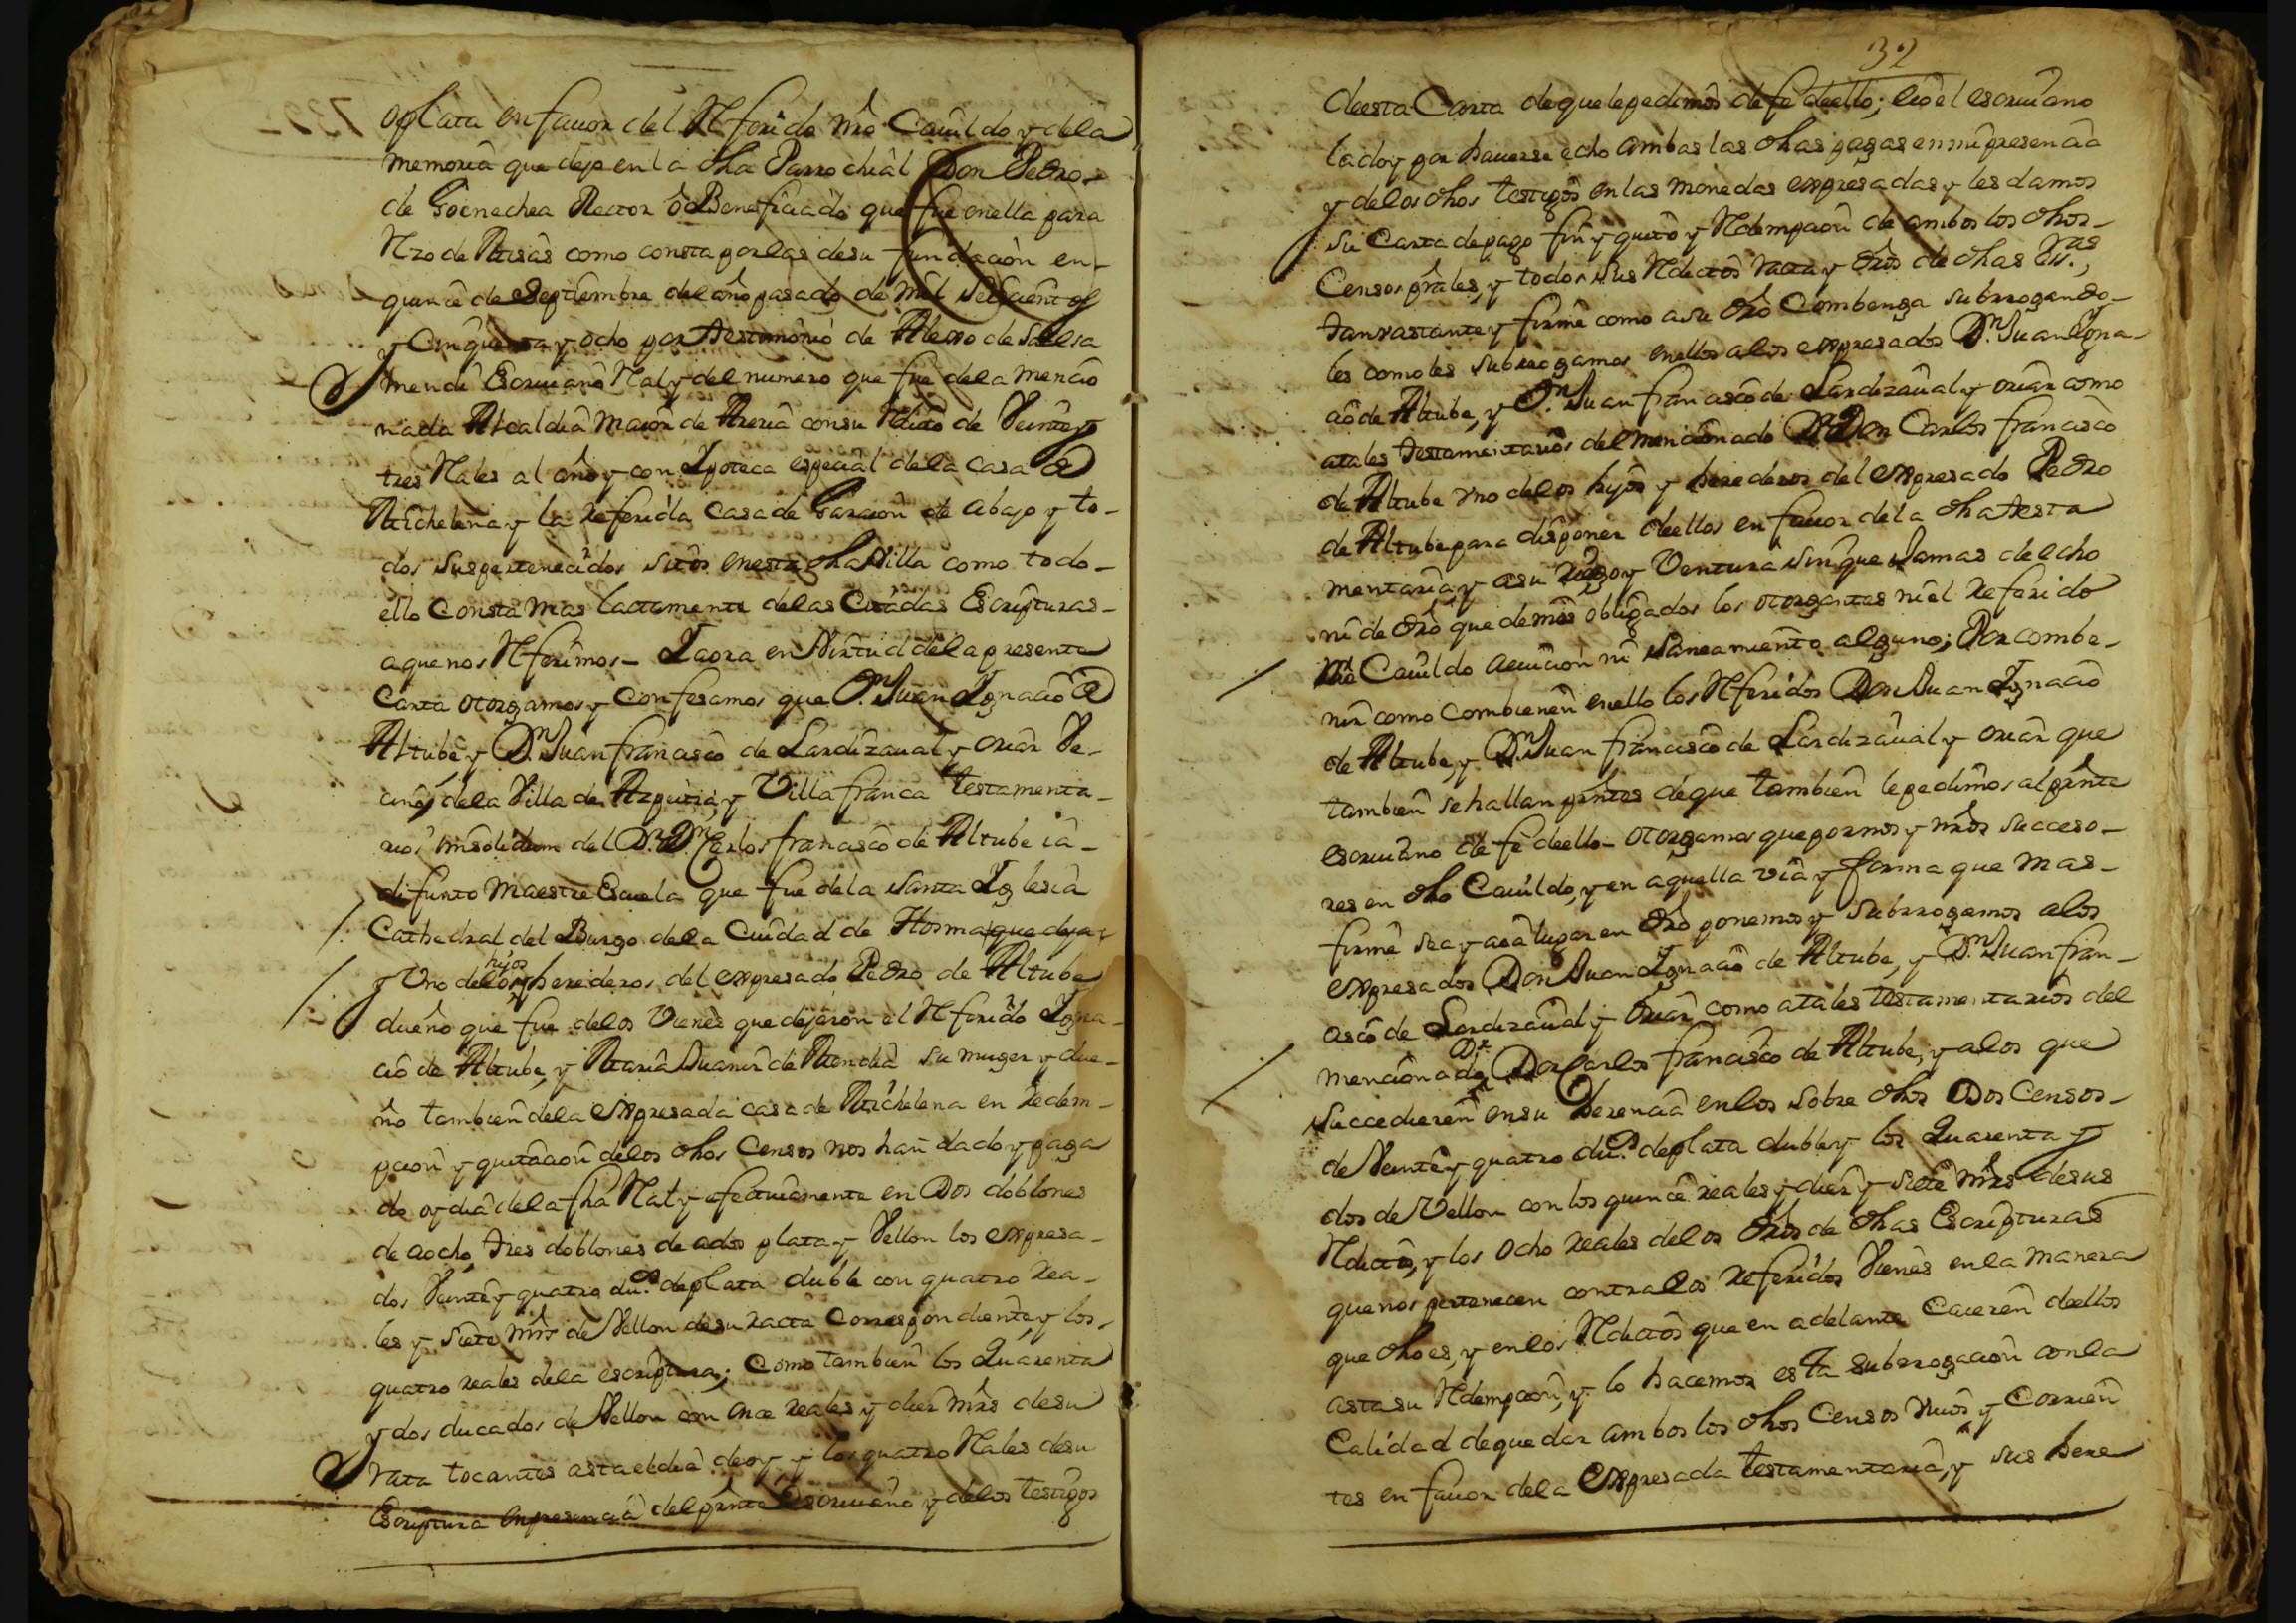 de plata en fauor del Referido nro Cauildo y dela
memoria que dejo en la dha Parrochial Don Pedro
de Goicoechea Rector ô Beneficiado que fue en ella para
Nro de Misas como consta por las de su fundacion en
quince de Septiembre del año pasado de mil Seiscientos
y Cinquenta y ocho por testimonio de
mendi Escriuano Real y del numero que fue dela mencio
nada Alcaldia maior de Areria con su Redito de Veinte y
tres Reales al año y con Ypoteca especial dela casa de
Michelena y la referida casa de Garacion de abajo y to-
dos sus pertenecidos sitos en esta dha Villa como todo-
ello consta mas lactamente delas Citadas Escripturas-
a que nos Referimos- Y aora en Virtud dela presente
Carta otorgamos y confesamos que Dn Juan Ygnacio de
Altube, y Dn Juan francisco de Lardizaual y oriar Ve-
cinos dela Villa de Azpeitia, y Villafranca testamenta-
rios insolidum del Dr. Dn Carlos francisco de Altube ia-
difunto Maestre Escuela que fue dela Santa Yglesia
Cathedral del Burgo dela Ciudad de Hosma que deja
y Uno delos hijos y herederos del expresado Pedro de Altube
dueño que fue delos Vienes que dejaron el Referido Ygna-
cio de Altube, y Maria Juaniz de Mendia su muger y due-
ño tambien dela expresada casa de Michelena en redem-
pcion y quitacion delos dhos Censos nos han dado y paga
do oy dia dela fha Real y efectiuamente en Dos doblones
de aocho, tres doblones de ados plata y Vellon los expresa-
dos Veinte y quatro dus. de plata duble con quatro rea-
les y siete mrs de Vellon de su racta Correspondiente y los
quatro reales dela escriptura; Como tambien los Quarenta
y dos ducados de Vellon con once reales y diez mrs de su
rata tocantes asta el dia de oy, y los quatro Reales de su
Escriptura en presencia del presnte escriuano y delos testigos
32
de esta Carta de que le pedimos de fe de ello; el escriuano
la doy por hauerse echo ambas las dhas pagas en mi presencia
y delos dhos testigos en las monedas expresadas y les damos
su Carta de pago fin y quito y Redempcion de ambos los dhos-
Censos prales, y todos sus Reditos racta y dros de dhas Essras,
tan vastante y firme como a su dro Combenga subrrogando-
les como les subrrogamos en ellos alos expresados Dn Juan Ygna-
cio de Altube, y Dn Juan francisco de Lardizaual y oriar como
atales testamentarios del mencionado Dr Don Carlos francisco
de Altube vno delos hijos y herederos del expresado Pedro
de Altube para disponer de ellos en fauor dela dha testa
mentaria, y a su riesgo y Ventura sin que Jamas de echo
ni de dro quedemos obligados los otorgantes ni el referido
nro Cauildo a euicion ni saneamiento alguno; Por combe-
nir como combienen en ello los Referidos Don Juan Ygnacio
de Altube, y Dn Juan francisco de Lardizaual y oriar que
tambien se hallan presntes de que tambien le pedimos al presnte
escriuano de fe de ello- otorgamos que por nos y nros succeso-
res en dho Cauildo, y en aquella via y forma que mas-
firme sea y aia lugar en dro ponemos y subrrogamos alos
expresados Don Juan Ygnacio de Altube, y Dn Juan fran-
cisco de Lardizaual y Oriar como atales testamentarios del
mencionado Dr Don Carlos francisco de Altube, y alos que
succedieren en su herencia en los sobre dhos Dos Censos-
de Veinte y quatro dus. de plata duble y los Quarenta y
dos de Vellon con los quince reales y diez y siete mrs de sus
Reditos, y los ocho reales delos dros de dhas Escripturas
que nos pertenecen contra los referidos Vienes en la manera
que dho es, y en los Reditos que en adelante Caieren de ellos
asta su Redempcion, y lo hacemos esta subrrogacion con la
Calidad de quedar ambos los dhos Censos viuos y Corrien
tes en fauor dela expresada testamentaria, y sus here